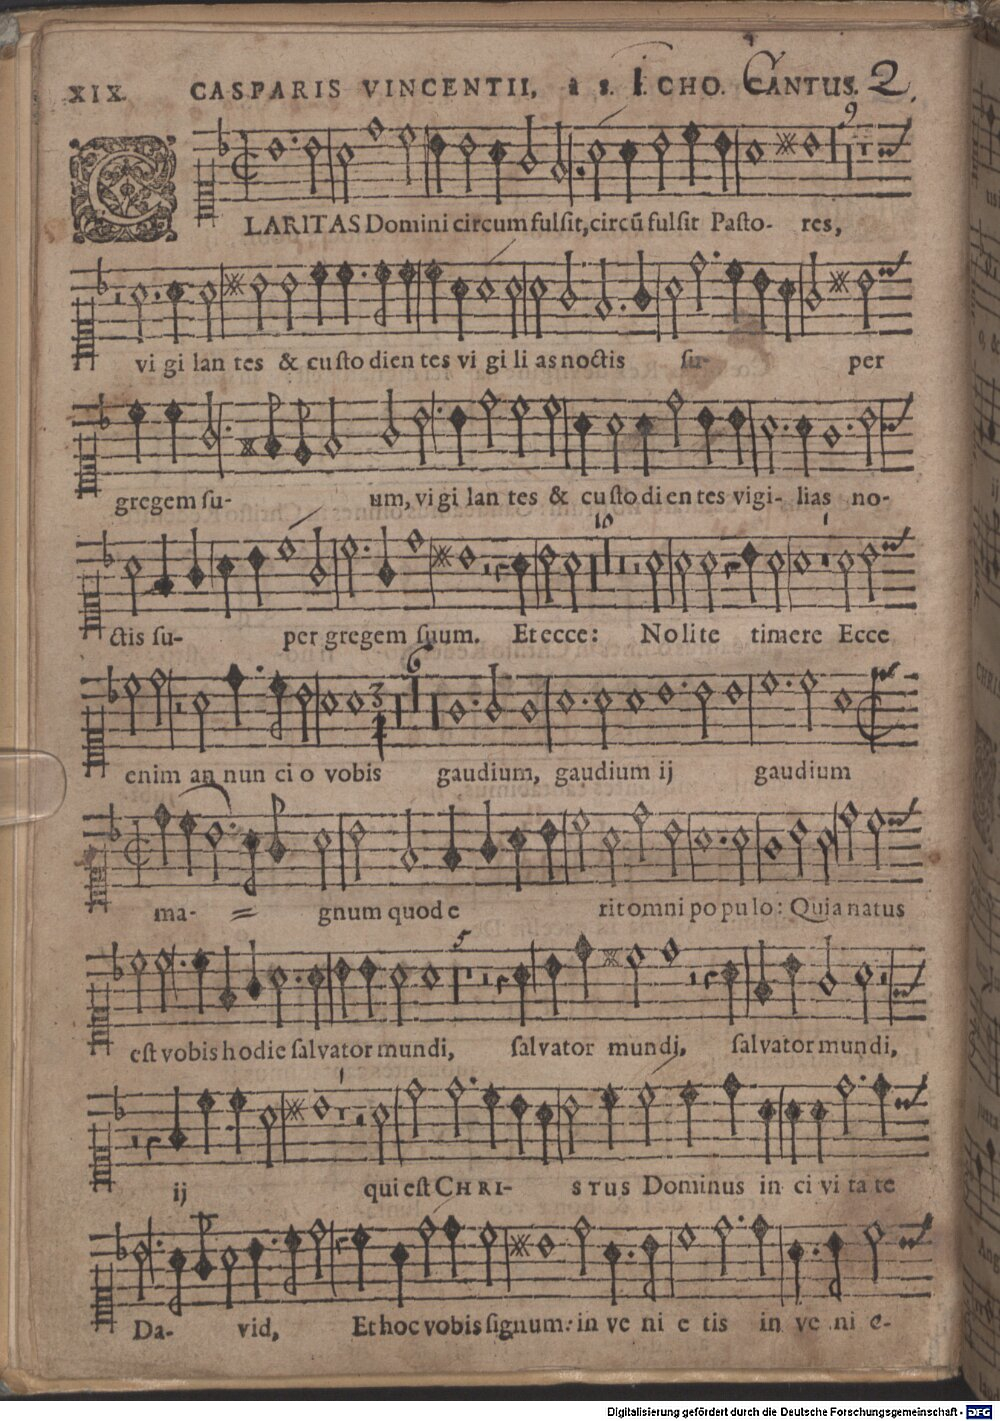 XIX. CASPARIS VINCENTII, à 8. I. CHO. CANTUS. 2.
9
CLARITAS Domini circum fulsit, circũ fulsit Pasto- res,
vi gi lan tes & custo dien tes vi gi li as noctis su- per
gregem su- um, vi gi lan tes & custo di en tes vigi- lias no-
10 1
ctis su- per gregem suum. Et ecce: Nolite timere Ecce
3 6
enim an nun ci o vobis gaudium, gaudium ij gaudium
ma- = gnum quod e rit omni po pu lo: Quia natus
5
est vobis hodie salvator mundi, salvator mundi, salvator mundi,
1
ij qui est CHRI- STUS Dominus in ci vi ta te
Da- vid, Et hoc vobis signum: in ve ni e tis in ve ni e-
Digitalisierung gefördert durch die Deutsche Forschungsgemeinschaft - DFG